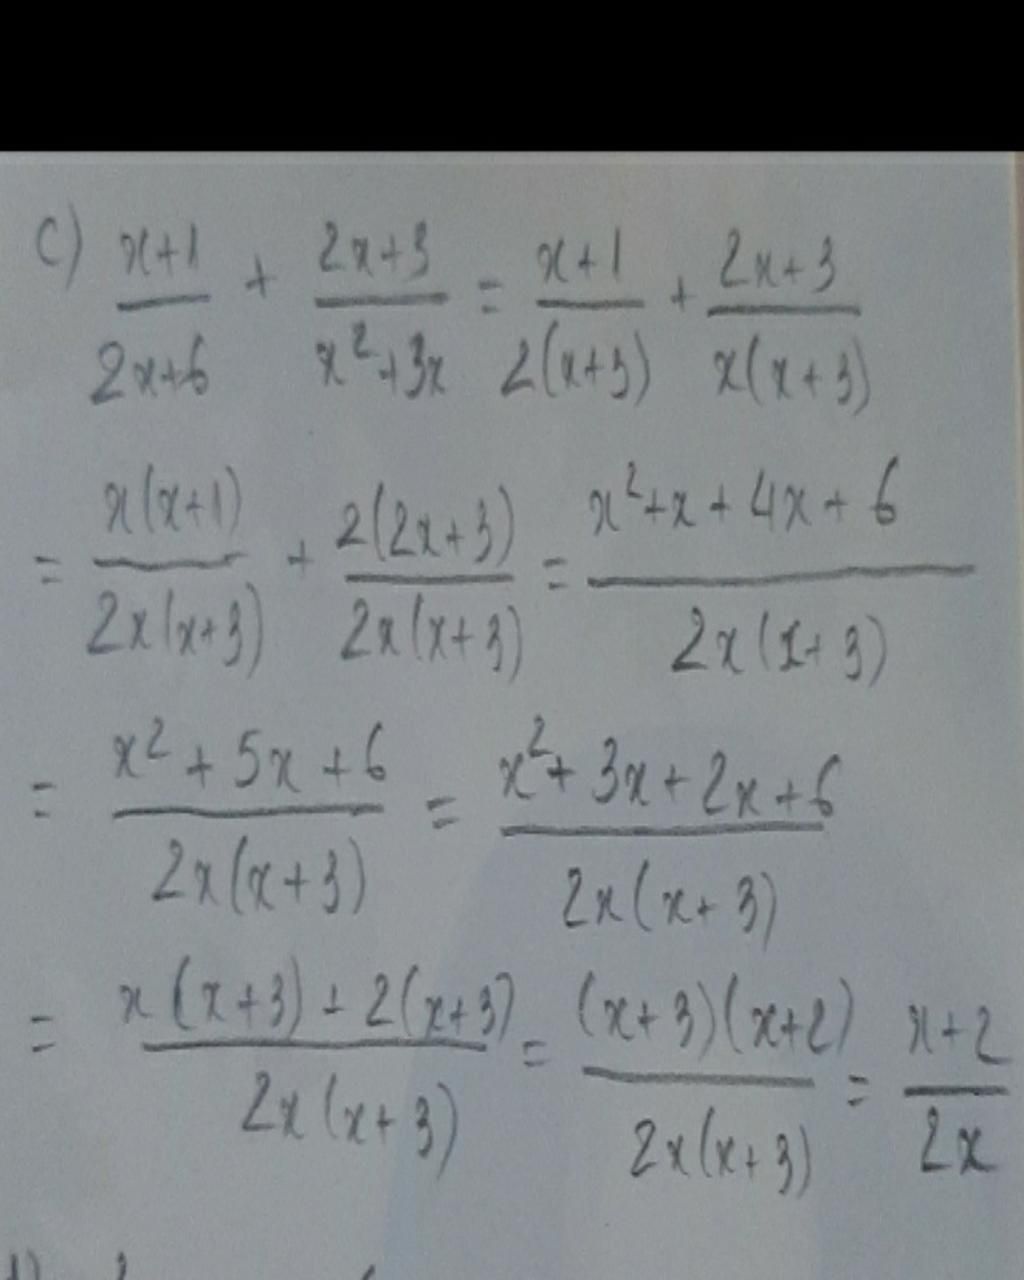 c) \frac{x+1}{2x+6} + \frac{2x+3}{x^2+3x} = \frac{x+1}{2(x+3)} + \frac{2x+3}{x(x+3)}
= \frac{x(x+1)}{2x(x+3)} + \frac{2(2x+3)}{2x(x+3)} = \frac{x^2+x+4x+6}{2x(x+3)}
= \frac{x^2+5x+6}{2x(x+3)} = \frac{x^2+3x+2x+6}{2x(x+3)}
= \frac{x(x+3)+2(x+3)}{2x(x+3)} = \frac{(x+3)(x+2)}{2x(x+3)} = \frac{x+2}{2x}